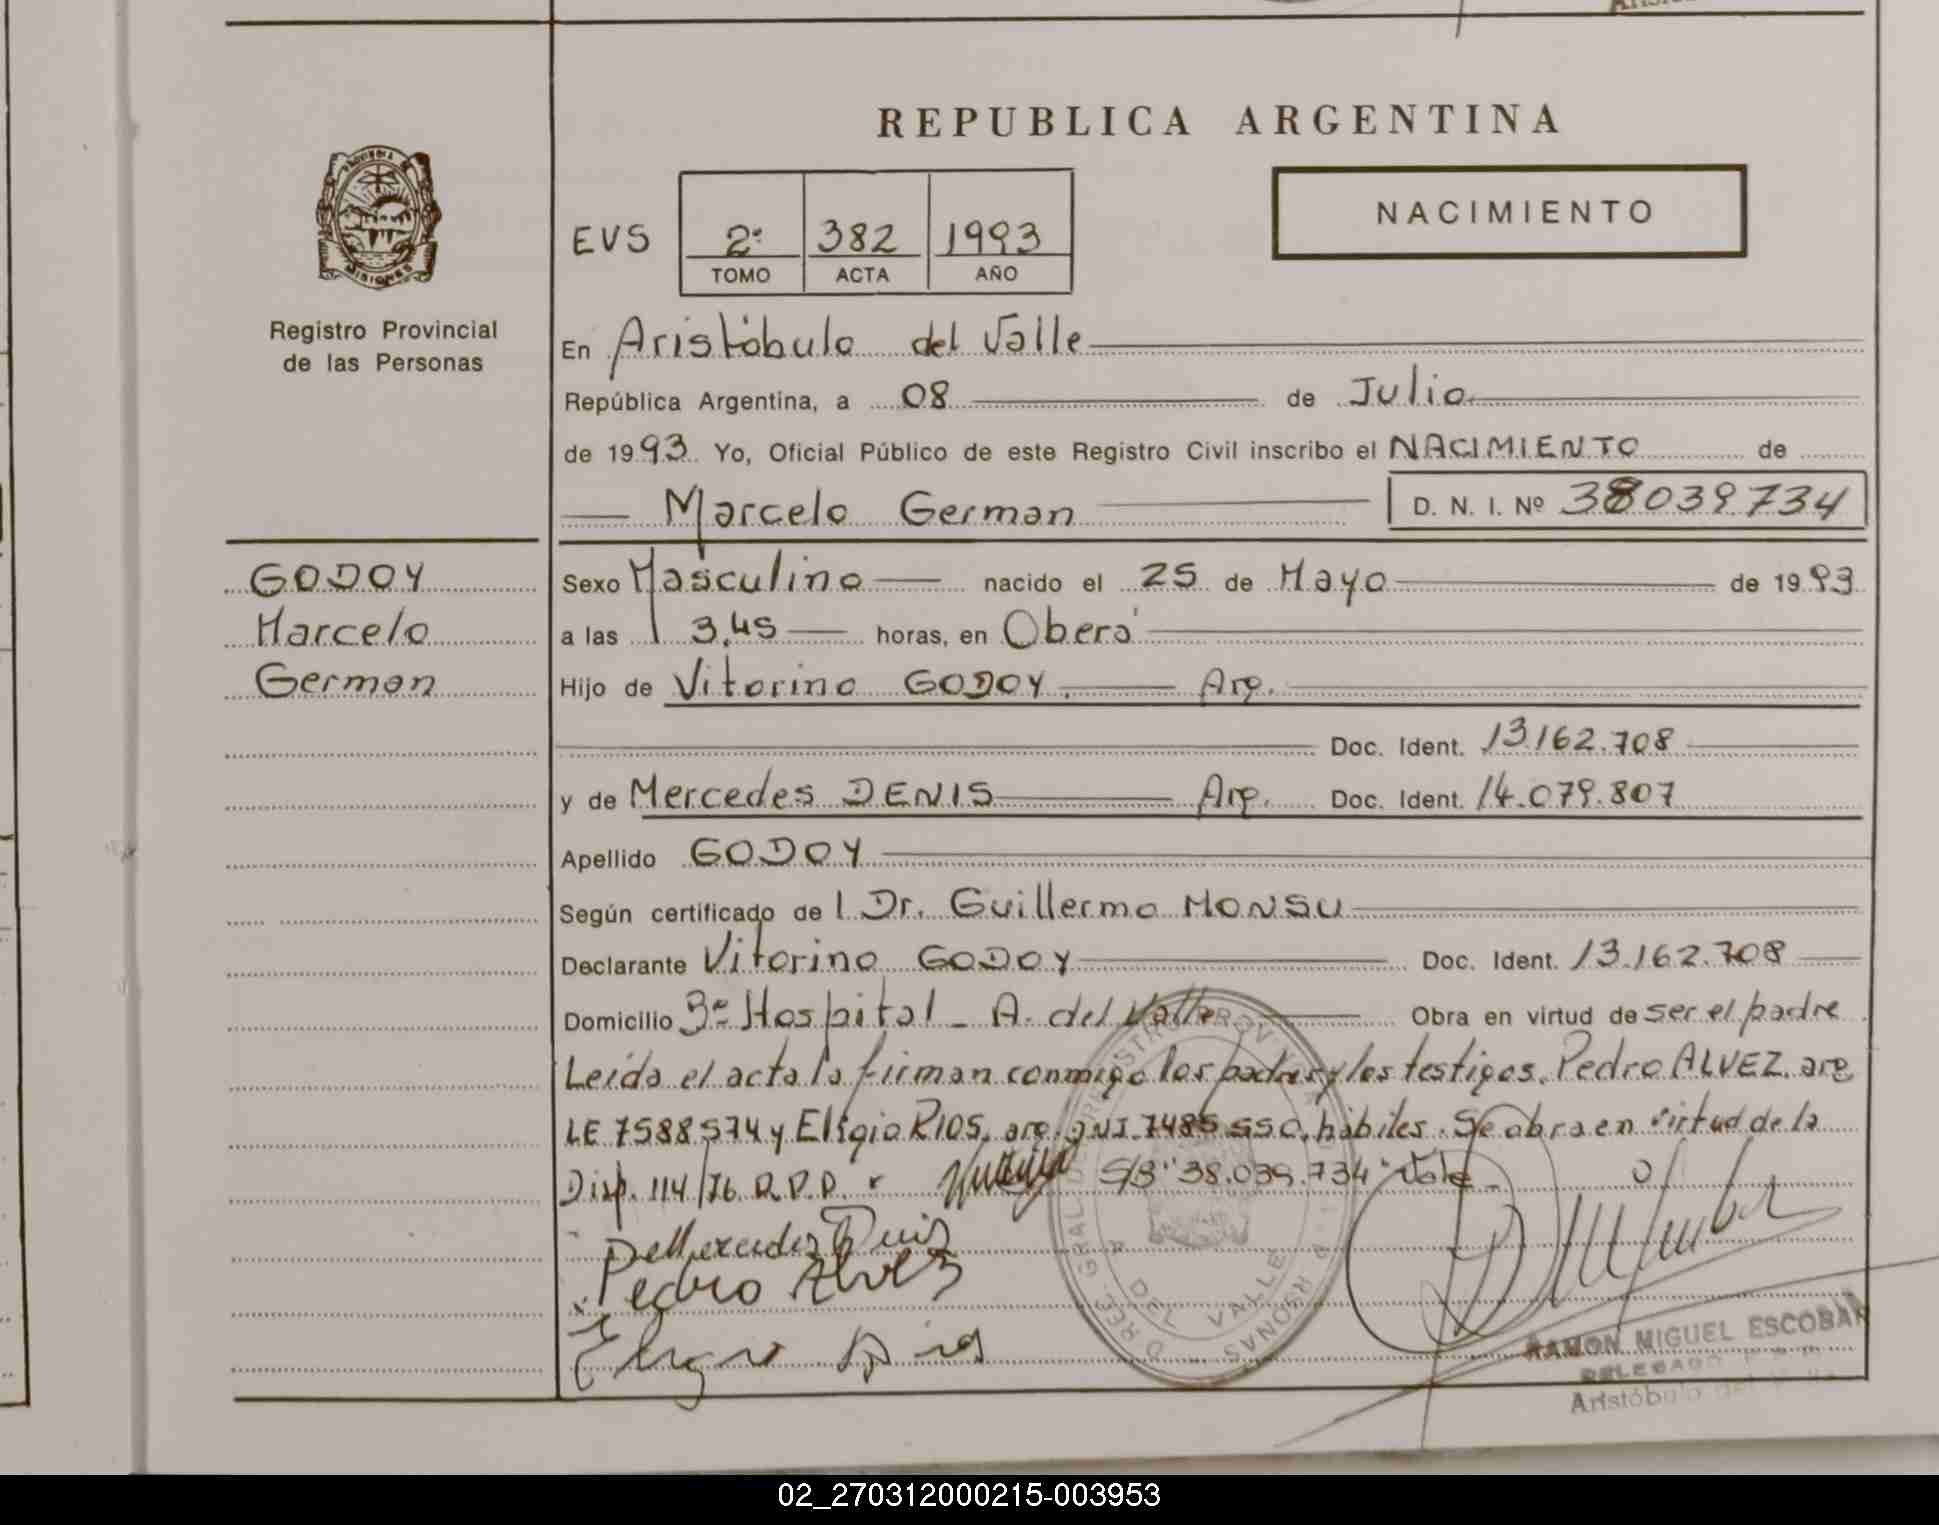 REPUBLICA ARGENTINA
PROVINCIA DE
MISIONES
Registro Provincial
de las Personas
NACIMIENTO
EVS 2º 382 1993
TOMO ACTA AÑO
En Aristóbulo del Valle
República Argentina, a 08 de Julio
de 1993 Yo, Oficial Público de este Registro Civil inscribo el NACIMIENTO de
Marcelo German D. N. I. Nº 38039734
GODOY
Marcelo
German
Sexo Masculino nacido el 25 de Mayo de 1993
a las 3,45 horas, en Oberá
Hijo de Vitorino GODOY. Arg.
Doc. Ident. 13.162.708
y de Mercedes DENIS Arg. Doc. Ident. 14.079.807
Apellido GODOY
Según certificado de l Dr. Guillermo MONSU
Declarante Vitorino GODOY Doc. Ident. 13.162.708
Domicilio Bº Hospital - A. del Valle Obra en virtud de ser el padre
Leída el acta la firman conmigo los padres y los testigos. Pedro ALVEZ. arg
LE 7588574 y Eligio RIOS, arg. DNI. 7485550, hábiles. Se obra en virtud de la
Disp. 114/76. R.P.P. S/B "38.039.734" Vale
Pedro Alvez
DEL VALLE
MISIONES
RAMON MIGUEL ESCOBAR
DELEGADO
Aristóbulo del Valle
02_270312000215-003953